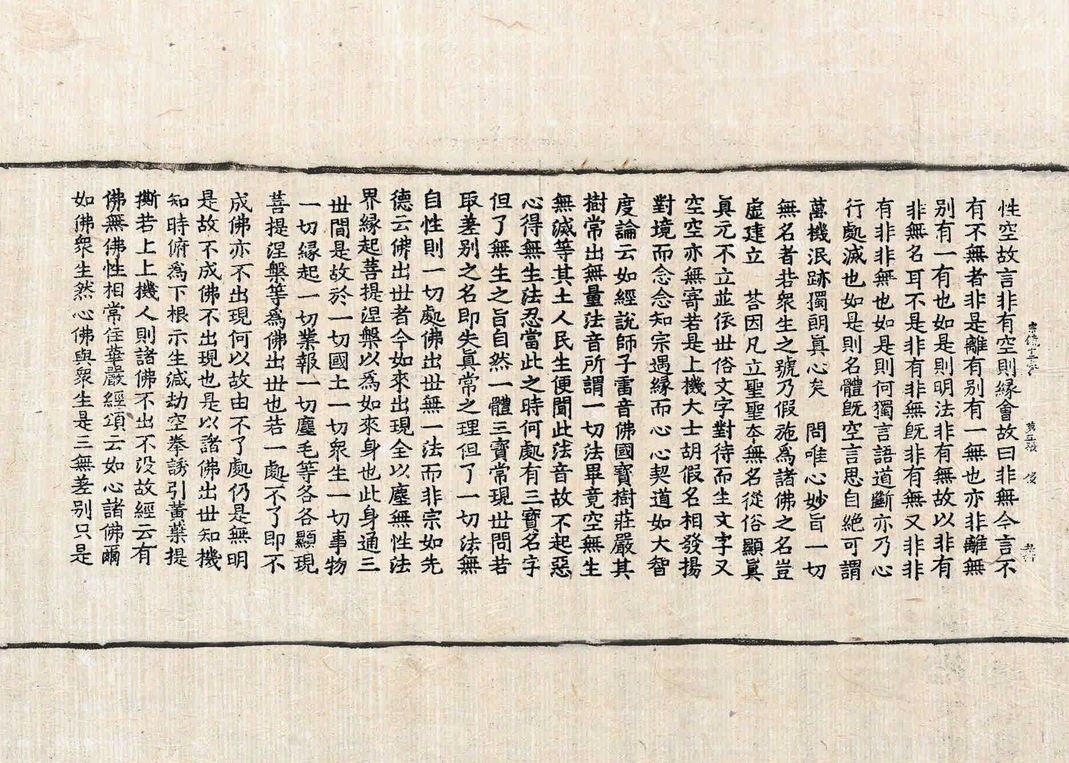 性空故言非有空則緣會故曰非無今言不
有不無者非是離有別有一無也亦非離無
別有一有也如是則明法非有無故以非有
非無名耳不是非有非無旣非有無又非非
有非非無也如是則何獨言語道斷亦乃心
行處滅也如是則名體旣空言思自絕可謂
萬機泯跡獨朗眞心矣　問唯心妙旨一切
無名者若衆生之號乃假施爲諸佛之名豈
虛建立　荅因凡立聖聖夲無名從俗顯眞
眞元不立並依世俗文字對待而生文字又
空空亦無寄若是上機大士胡假名相發揚
對境而念念知宗遇緣而心心契道如大智
度論云如經說師子雷音佛國寶樹莊嚴其
樹常出無量法音所謂一切法畢竟空無生
無滅等其土人民生便聞此法音故不起惡
心得無生法忍當此之時何處有三寶名字
但了無生之旨自然一體三寶常現世問若
取差別之名即失眞常之理但了一切法無
自性則一切處佛出世無一法而非宗如先
德云佛出世者今如來出現全以塵無性法
界緣起菩提涅槃以爲如來身也此身通三
世間是故於一切國土一切衆生一切事物
一切緣起一切業報一切塵毛等各各顯現
菩提涅槃等爲佛出世也若一處不了即不
成佛亦不出現何以故由不了處仍是無明
是故不成佛不出現也是以諸佛出世知機
知時俯爲下根示生滅劫空拳誘引黃葉提
撕若上上機人則諸佛不出不没故經云有
佛無佛性相常住華嚴經頌云如心諸佛爾
如佛衆生然心佛與衆生是三無差別只是